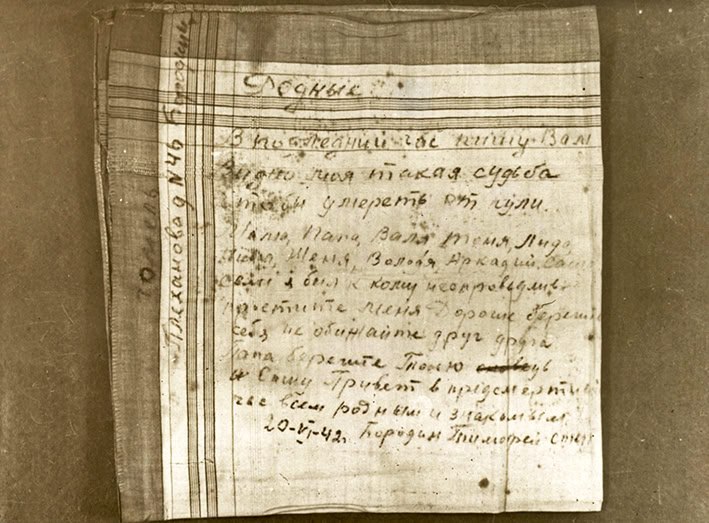 Родные
В последний час пишу Вам
Видно моя такая судьба
чтобы умереть от пули.
Папа, Валя Тоня, Лида
Женя, Володя, Аркадий, Саша
если я был к кому несправедлив
простите меня Дорогие берегите
себя не обижайте друг друга
Папа берегите Толю
и Сашу Привет в предсмертный
час всем родным и знакомым
20-VI-42г. Бородин Тимофей
Гомель
Плеханова д N46 Бородин